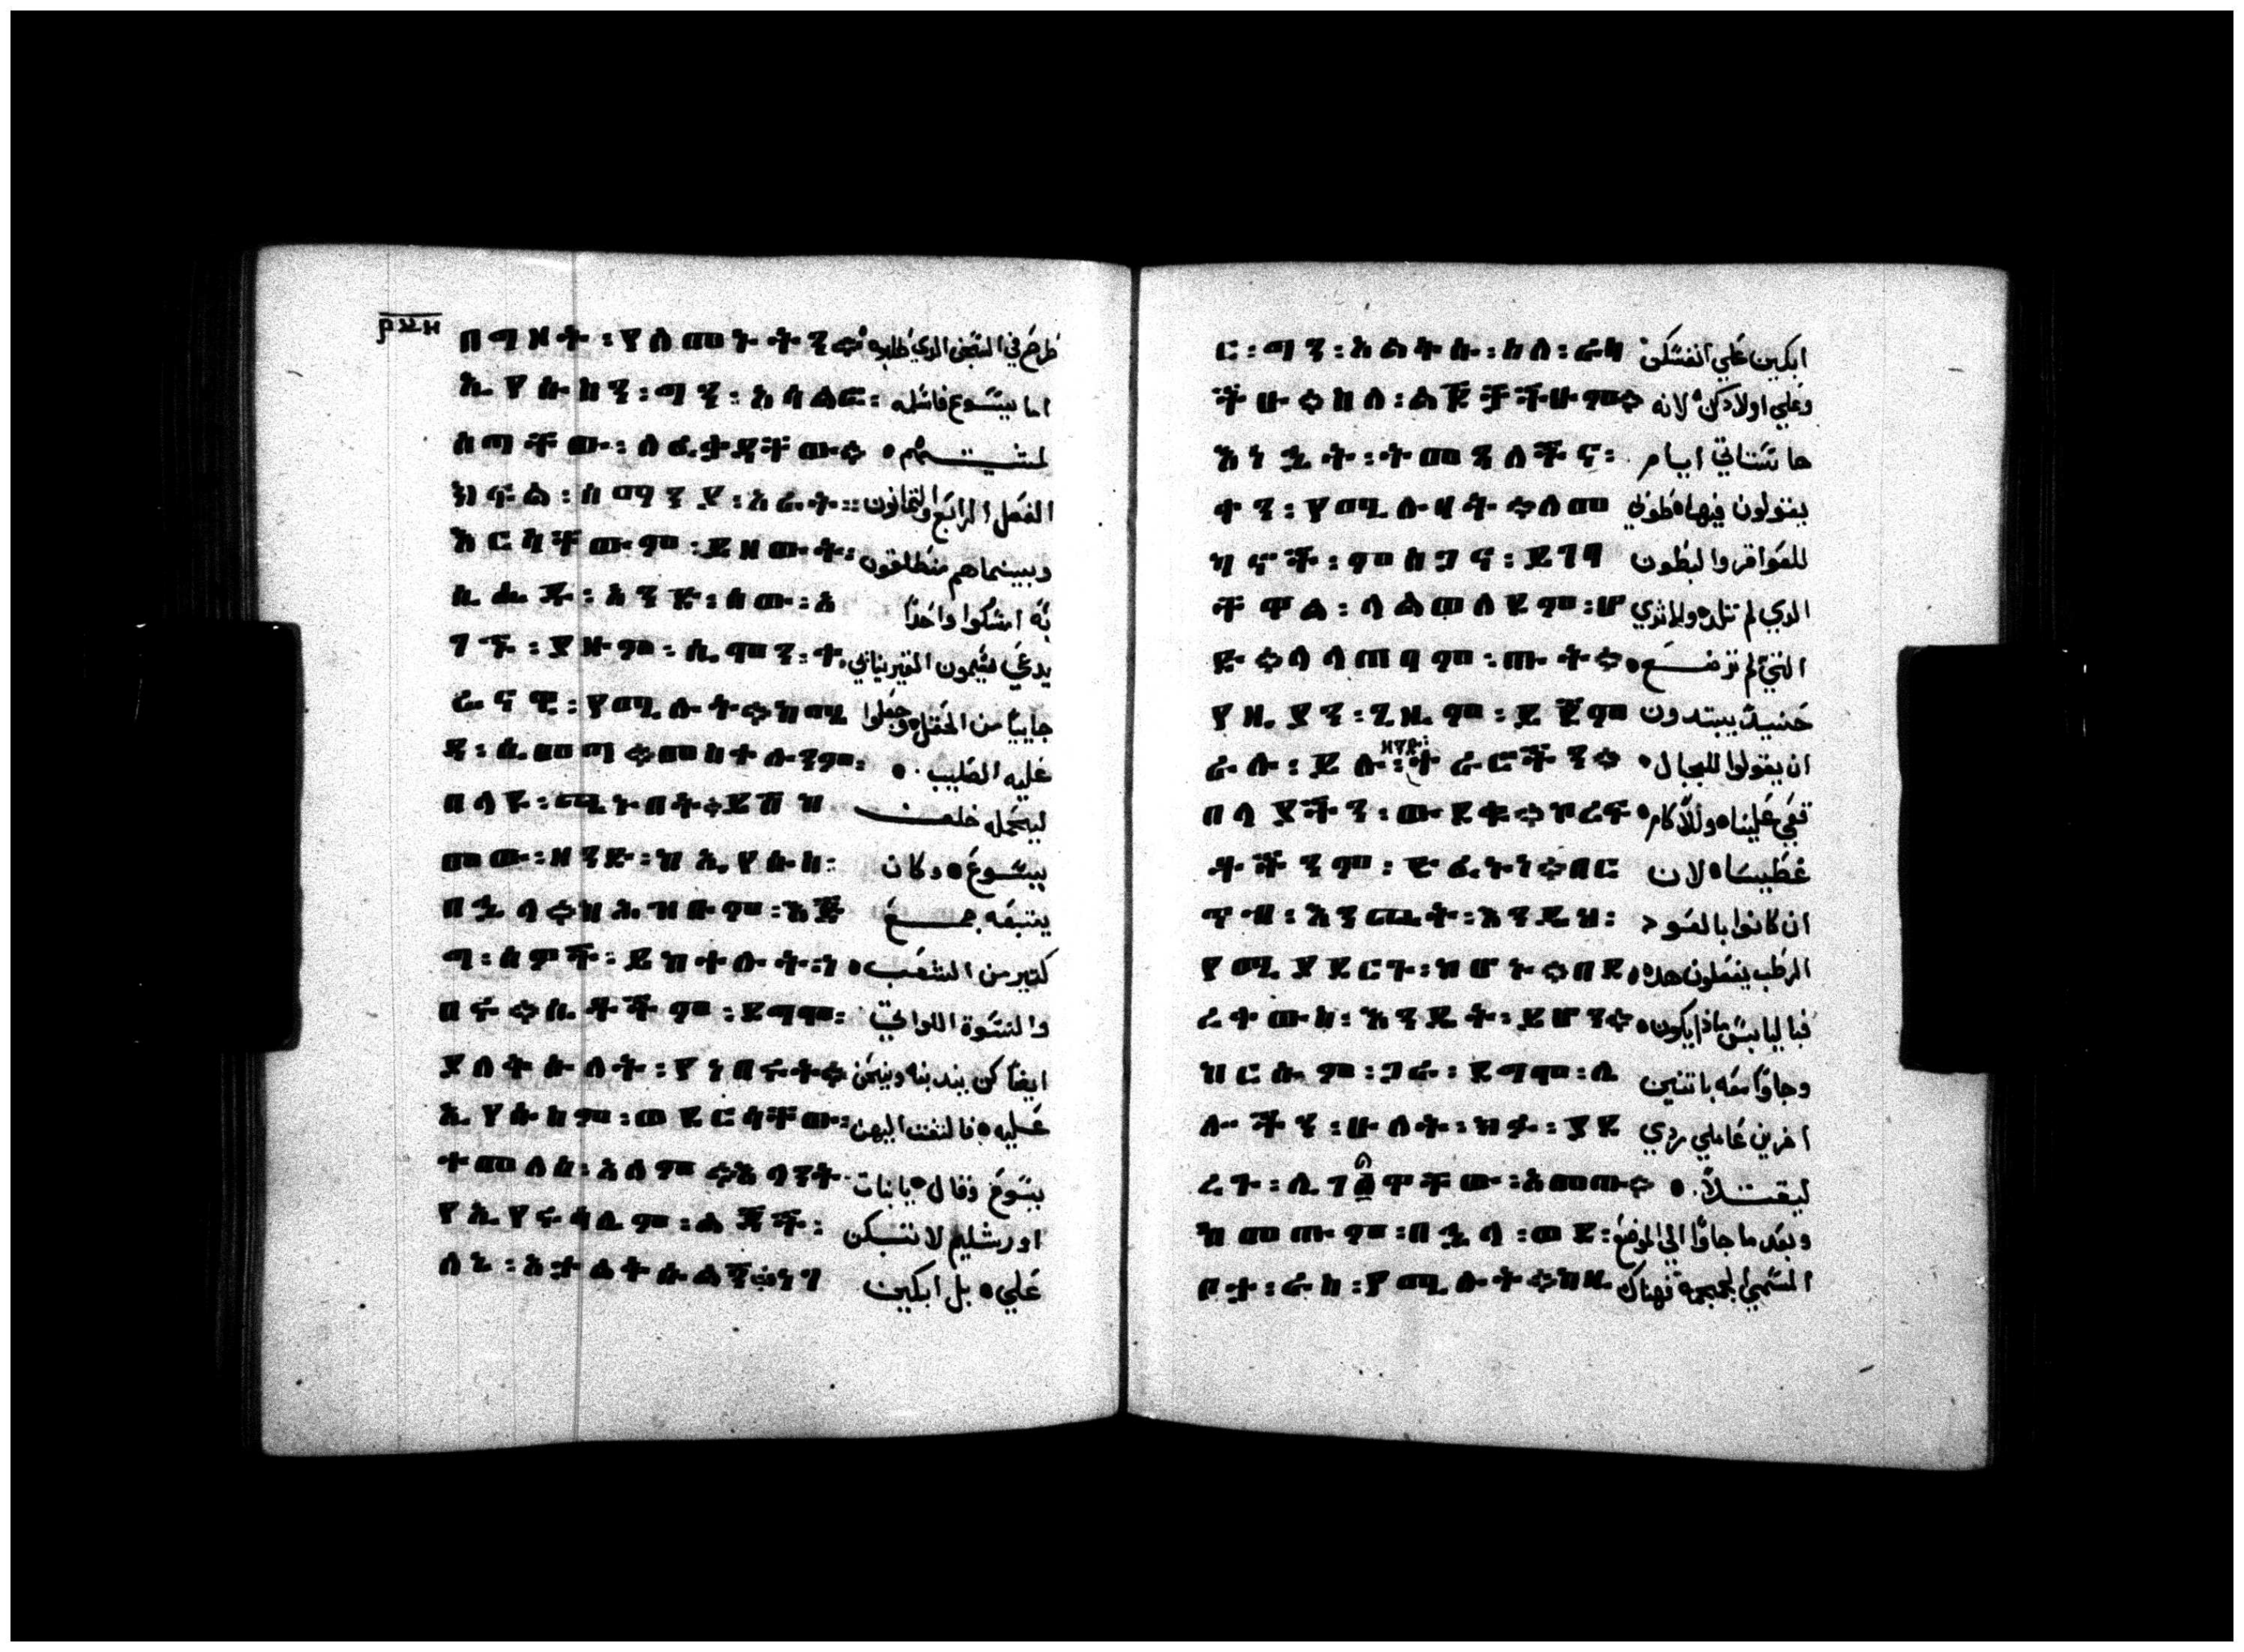 በማዞት፡የለመኑትን። طرح في السجن الدي طلبوه
ኢየሱስን፡ግን፡አሳልፎ፡ اما ييسوع فاسلمه
ሰጣቸው፡ለፈቃዳቸው። لمشيتهم
ክፍል፡ሰማንያ፡አራት። الفصل الرابع والتمانون
እርሳቸውም፡ይዘውት፡ وبينما هم منطلقون
ሲሔዱ፡አንድ፡ሰው፡አ به امسكوا واحدا
ገኙ፡ያዙም፡ሲሞን፡ቀ يدعي سيمون القيرنياني
ሬናዊ፡የሚሉት።ከሜ جاييا من الحقل وجعلوا
ዳ፡ሲመጣ።መስቀሉንም፡ عليه الصليب
በላዩ፡ጫኑበት።ይሸከ ليحمله خلف
መው፡ዘንድ፡ከኢየሱስ፡ ييسوع وكان
በኋላ።ከሕዝቡም፡እጅ يتبعه جمع
ግ፡ሰዎች፡ይከተሉት፡ነ كتير من الشعب
በሩ።ሴቶችም፡ይማማ፡ والنسوة اللواتي
ያለቅሱለት፡የነበሩት። ايضا كن يندبنه وينحن
ኢየሱስም፡ወደርሳቸው፡ عليه فالتفت اليهن
ተመለሰ፡አለም።እላንት ييسوع وقال يا بنات
የኢየሩሳሌም፡ልጆች፡ اورشليم لا تبكن
ለኔ፡አታልቅሱልኝ፡ነገ علي بل ابكين
ር፡ግን፡አልቅሱ፡ስለ፡ራሳ ابكين علي انفسكن
ችሁ።ስለ፡ልጆቻችሁም። وعلي اولادكن لانه
እነኋት፡ትመጻለችና፡ ها ستاتي ايام
ቀን፡የሚሉባት።ለመ يقولون فيها طوبي
ካኖች፡ምስጋና፡ይገባ للعواقر والبطون
ቸዋል፡ላልወለዱም፡ሆ الدي لم تلد ولاثدي
ድ።ላላጠቡም፡ጡት። التي لم ترضع
የዚያን፡ጊዜም፡ይጀም حينيد يبتدون
ራሉ፡ይሉ፡ዘንድ፡ተራሮችን። ان يقولوا للجبال
በላያችን፡ውደቁ።ከረፍ قعي علينا وللاكام
ቶችንም፡ድፈኑነ።በር غطينا لان
ጥቡ፡እንጨት፡እንዲህ፡ ان كانوا بالعود
የሚያደርጉ፡ከሆኑ።በደ الرطب يفعلون هده
ረቀውስ፡እንዴት፡ይሆን። فباليابس ماذا يكون
ከርሱም፡ጋራ፡ይማማ፡ሌ وجاوا معه باتنين
ሎችን፡ሁለት፡ክፉ፡ያደ اخرين عاملي ردي
ረጉ፡ሊገድሏቸው፡አመጡ። ليقتلا
ከመጡም፡በኋላ፡ወደ፡ وبعد ما جاوا الي الموضع
ቦታ፡ራስ፡የሚሉት።ከዚ المسمي الجمجمة فهناك